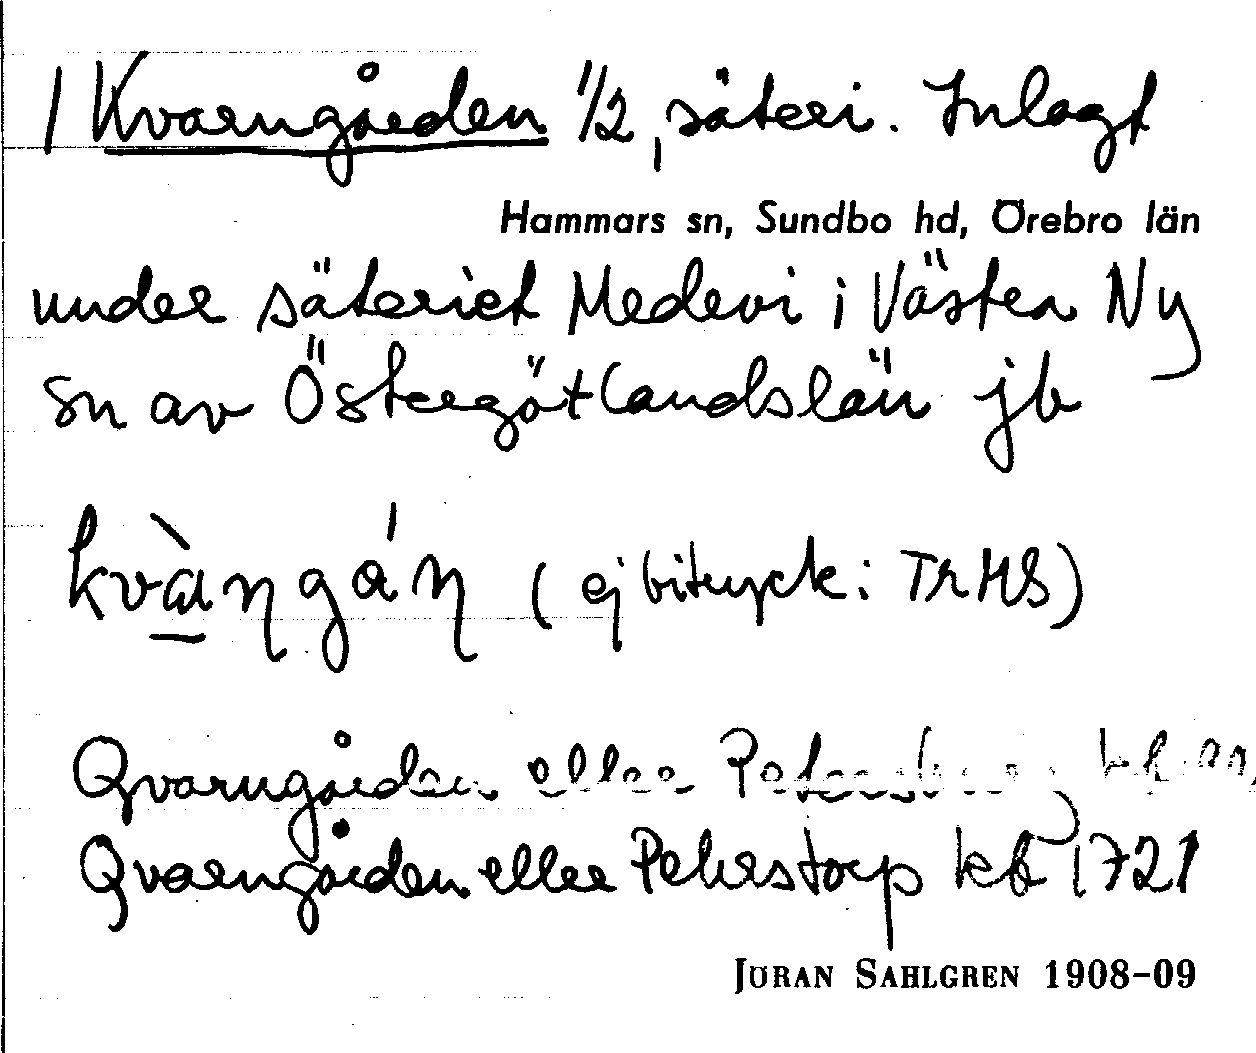 1 Kvarngården 1/2, säteri. Inlagt
Hammars sn, Sundbo hd, Örebro län
under säteriet Medevi i Västra Ny
sn av Östergötlands län jb
kvàngán (ej bitryck: TRMS)
Qvarngården eller Petersburg
Qvarngården eller Pehrstorp kb 1721
JÖRAN SAHLGREN 1908-09